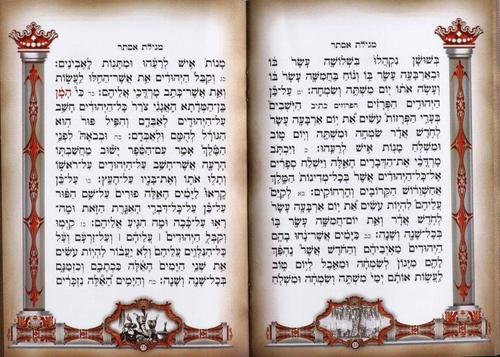 מגילת אסתר
בְּשׁוּשָׁן נִקְהֲלוּ בִּשְׁלוֹשָׁה עָשָׂר בּוֹ
וּבְאַרְבָּעָה עָשָׂר בּוֹ וְנוֹחַ בַּחֲמִשָּׁה עָשָׂר בּוֹ
וְעָשֹׂה אֹתוֹ יוֹם מִשְׁתֶּה וְשִׂמְחָה: יט עַל־כֵּן
הַיְּהוּדִים הַפְּרָזִים הפרוזים כתיב הַיֹּשְׁבִים
בְּעָרֵי הַפְּרָזוֹת עֹשִׂים אֵת יוֹם אַרְבָּעָה עָשָׂר
לְחֹדֶשׁ אֲדָר שִׂמְחָה וּמִשְׁתֶּה וְיוֹם טוֹב
וּמִשְׁלֹחַ מָנוֹת אִישׁ לְרֵעֵהוּ: כ וַיִּכְתֹּב
מָרְדֳּכַי אֶת־הַדְּבָרִים הָאֵלֶּה וַיִּשְׁלַח סְפָרִים
אֶל־כָּל־הַיְּהוּדִים אֲשֶׁר בְּכָל־מְדִינוֹת הַמֶּלֶךְ
אֲחַשְׁוֵרוֹשׁ הַקְּרוֹבִים וְהָרְחוֹקִים: כא לְקַיֵּם
עֲלֵיהֶם לִהְיוֹת עֹשִׂים אֵת יוֹם אַרְבָּעָה עָשָׂר
לְחֹדֶשׁ אֲדָר וְאֵת יוֹם־חֲמִשָּׁה עָשָׂר בּוֹ
בְּכָל־שָׁנָה וְשָׁנָה: כב כַּיָּמִים אֲשֶׁר־נָחוּ בָהֶם
הַיְּהוּדִים מֵאֹיְבֵיהֶם וְהַחֹדֶשׁ אֲשֶׁר נֶהְפַּךְ
לָהֶם מִיָּגוֹן לְשִׂמְחָה וּמֵאֵבֶל לְיוֹם טוֹב
לַעֲשׂוֹת אוֹתָם יְמֵי מִשְׁתֶּה וְשִׂמְחָה וּמִשְׁלֹחַ
מגילת אסתר
מָנוֹת אִישׁ לְרֵעֵהוּ וּמַתָּנוֹת לָאֶבְיֹנִים:
כג וְקִבֵּל הַיְּהוּדִים אֵת אֲשֶׁר־הֵחֵלּוּ לַעֲשׂוֹת
וְאֵת אֲשֶׁר־כָּתַב מָרְדֳּכַי אֲלֵיהֶם: כד כִּי הָמָן
בֶּן־הַמְּדָתָא הָאֲגָגִי צֹרֵר כָּל־הַיְּהוּדִים חָשַׁב
עַל־הַיְּהוּדִים לְאַבְּדָם וְהִפִּיל פּוּר הוּא
הַגּוֹרָל לְהֻמָּם וּלְאַבְּדָם: כה וּבְבֹאָהּ לִפְנֵי
הַמֶּלֶךְ אָמַר עִם־הַסֵּפֶר יָשׁוּב מַחֲשַׁבְתּוֹ
הָרָעָה אֲשֶׁר־חָשַׁב עַל־הַיְּהוּדִים עַל־רֹאשׁוֹ
וְתָלוּ אֹתוֹ וְאֶת־בָּנָיו עַל־הָעֵץ: כו עַל־כֵּן
קָרְאוּ לַיָּמִים הָאֵלֶּה פוּרִים עַל־שֵׁם הַפּוּר
עַל־כֵּן עַל־כָּל־דִּבְרֵי הָאִגֶּרֶת הַזֹּאת וּמָה־
רָאוּ עַל־כָּכָה וּמָה הִגִּיעַ אֲלֵיהֶם: כז קִיְּמוּ
וְקִבְּלֻ הַיְּהוּדִים | עֲלֵיהֶם | וְעַל־זַרְעָם וְעַל
כָּל־הַנִּלְוִים עֲלֵיהֶם וְלֹא יַעֲבוֹר לִהְיוֹת עֹשִׂים
אֵת שְׁנֵי הַיָּמִים הָאֵלֶּה כִּכְתָבָם וְכִזְמַנָּם
בְּכָל־שָׁנָה וְשָׁנָה: כח וְהַיָּמִים הָאֵלֶּה נִזְכָּרִים